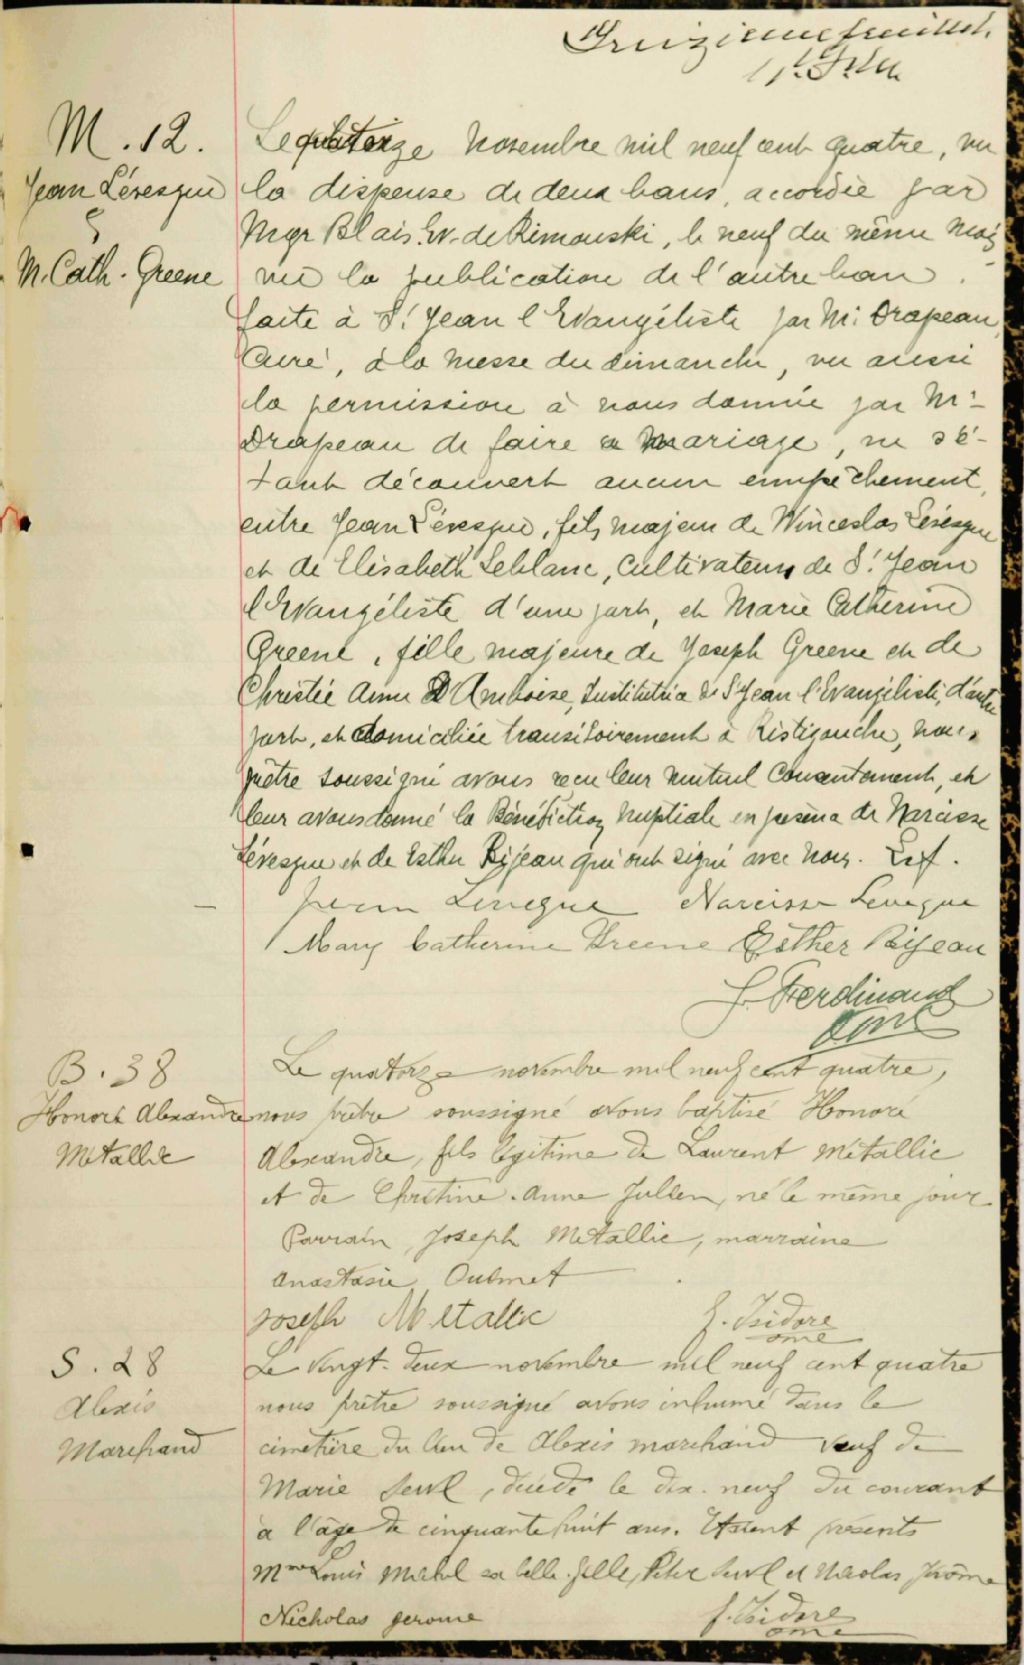 Treizieme feuillet.
M. 12.
Jean Lévesque
&
M. Cath. Greene
Le quatorze novembre mil neuf cent quatre, vu
la dispense de deux bans, accordée par
Mgr Blais Ev. de Rimouski, le neuf du même mois
vu la publication de l'autre ban
faite à St Jean l'Evangéliste par Mr Drapeau,
Curé, à la messe du dimanche, vu aussi
la permission à nous donnée par Mr
Drapeau de faire ce mariage, ne s'é-
tant découvert aucun empêchement,
entre Jean Lévesque, fils majeur de Winceslas Lévesque
et de Elisabeth Leblanc, Cultivateurs de St Jean
l'Evangéliste d'une part, et Marie Catherine
Greene, fille majeure de Joseph Greene et de
Christie Anne D'Amboise, Institutrice de St Jean l'Evangéliste, d'autre
part, et domiciliée transitoirement à Ristigouche, nous,
prêtre soussigné avons reçu leur mutuel consentement, et
leur avons donné la Bénédiction nuptiale en présence de Narcisse
Lévesque et de Esther Bijeau qui ont signé avec nous. Lef.
Jean Levegue Narcisse Levegue
Mary Catherine Greene Esther Bijeau
f. Ferdinand
B. 38
Honoré Alexandre
Metallic
Le quatorze novembre mil neuf cent quatre,
nous prêtre soussigné avons baptisé Honoré
Alexandre, fils légitime de Laurent Métallic
et de Christine-Anne Julien, né le même jour
Parrain Joseph Metallic, marraine
Anastasie
Joseph Metallic
f. Isidore
ome
S. 28
Alexis
Marchand
Le vingt-deux novembre mil neuf cent quatre
nous prêtre soussigné avons inhumé dans le
cimetière du lieu de Alexis marchand veuf de
Marie , décédé le dix-neuf du courant
à l'âge de cinquante huit ans. Etaient présents
Mme Louis Michel sa belle-fille, Peter et Nicolas Jérôme
Nicholas Jerome
f. Isidore
ome